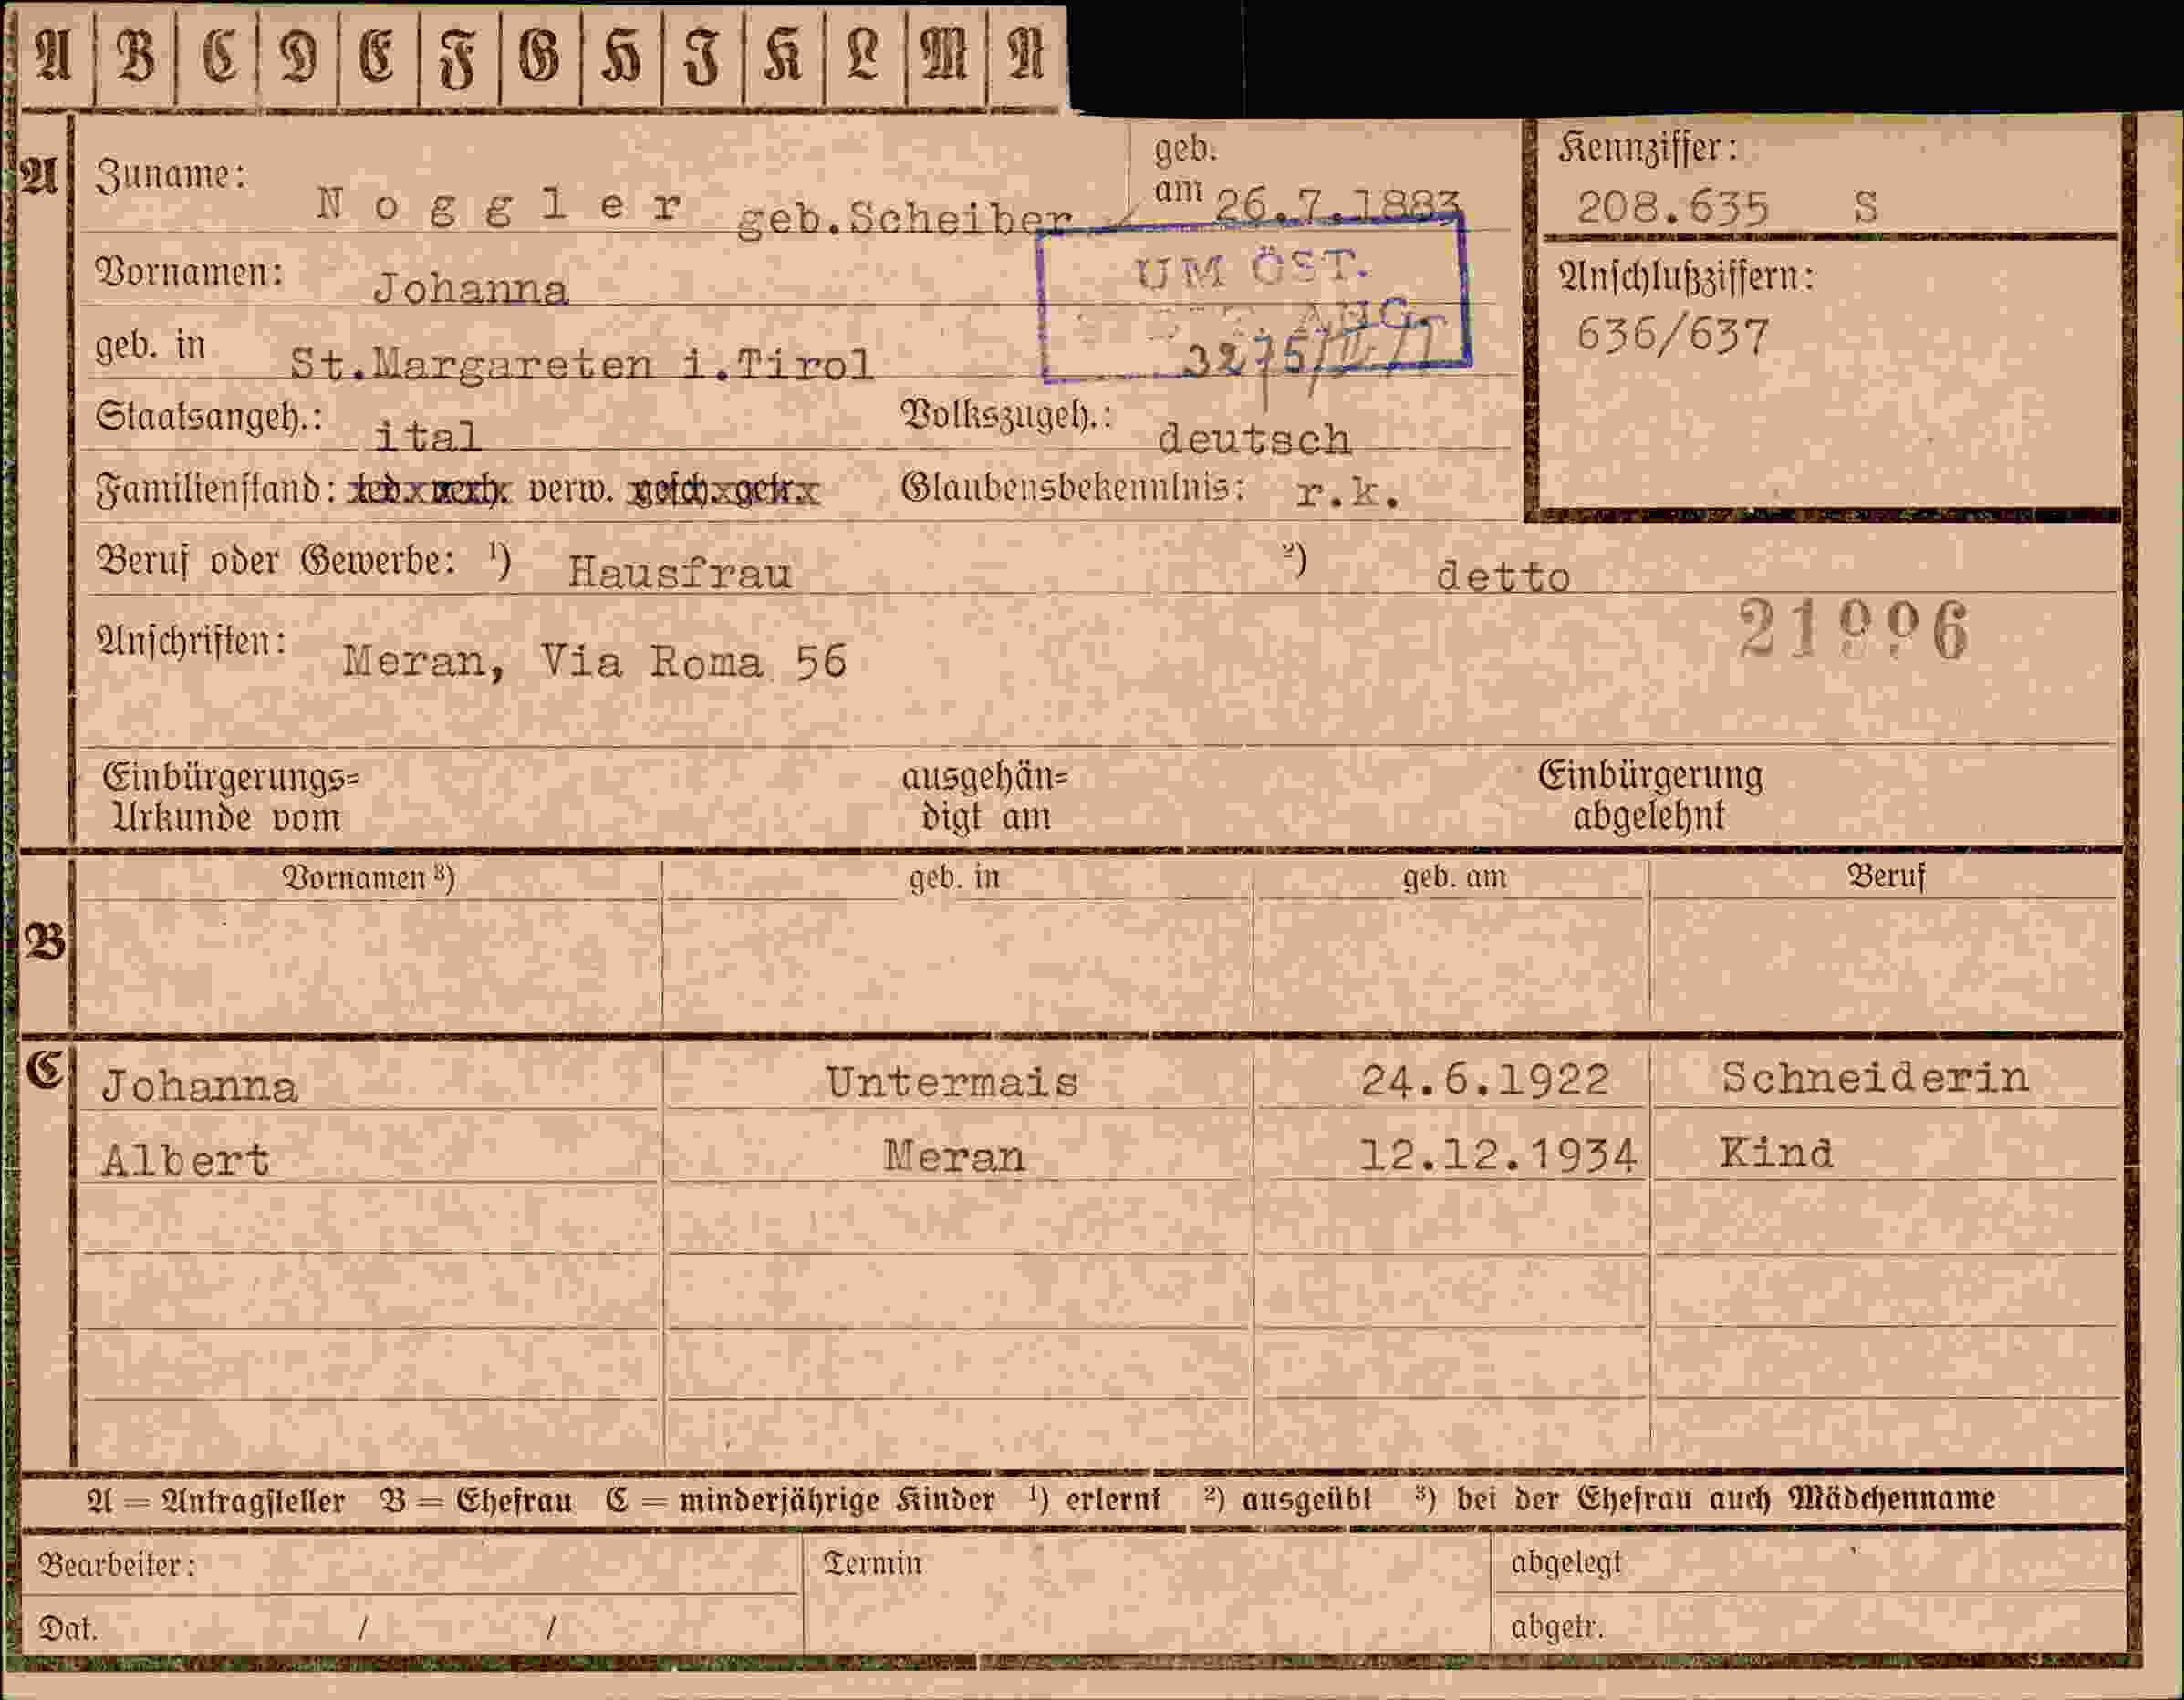 A B C D E F G H J K L M N
A
Zuname: Noggler geb.Scheiber geb. am 26.7.1883
Kennziffer: 208.635 S
Vornamen: Johanna
UM ÖST.
ANG.
Anschlußziffern: 636/637
geb. in St.Margareten i.Tirol
3275/II/
Staatsangeh.: ital Volkszugeh.: deutsch
Familienstand: led. verh. verw. gesch. getr. Glaubensbekenntnis: r.k.
Beruf oder Gewerbe: ¹) Hausfrau ²) detto
Anschriften: Meran, Via Roma 56
Einbürgerungs=
Urkunde vom
ausgehän=
digt am
Einbürgerung
abgelehnt
B
Vornamen ³) geb. in geb. am Beruf
C
Johanna Untermais 24.6.1922 Schneiderin
Albert Meran 12.12.1934 Kind
A = Antragsteller B = Ehefrau C = minderjährige Kinder ¹) erlernt ²) ausgeübt ³) bei der Ehefrau auch Mädchenname
Bearbeiter: Termin abgelegt
Dat. / / abgetr.